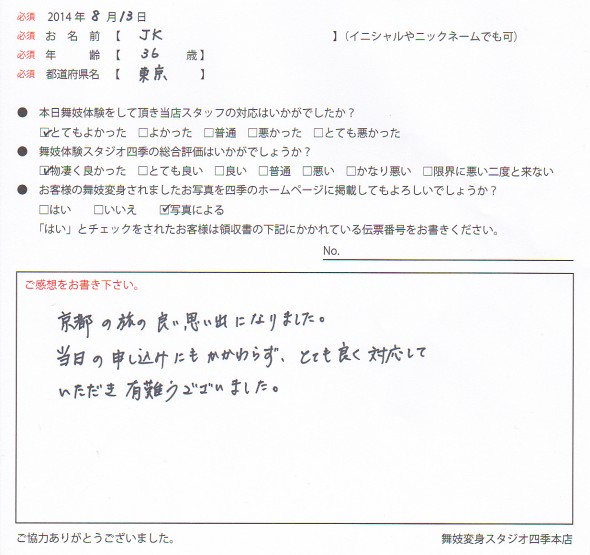 必須 2014年 8 月 13 日
必須 お名前【 JK 】(イニシャルやニックネームでも可)
必須 年齢【 36 歳】
必須 都道府県名【 東京 】
● 本日舞妓体験をして頂き当店スタッフの対応はいかがでしたか?
☑とてもよかった □よかった □普通 □悪かった □とても悪かった
● 舞妓体験スタジオ四季の総合評価はいかがでしょうか?
☑物凄く良かった □とても良い □良い □普通 □悪い □かなり悪い □限界に悪い二度と来ない
● お客様の舞妓変身されましたお写真を四季のホームページに掲載してもよろしいでしょうか?
□はい □いいえ ☑写真による
「はい」とチェックをされたお客様は領収書の下記にかかれている伝票番号をお書きください。
No.
ご感想をお書き下さい。
京都の旅の良い思い出になりました。
当日の申し込けにもかかわらず、とても良く対応して
いただき有難うございました。
ご協力ありがとうございました。 舞妓変身スタジオ四季本店